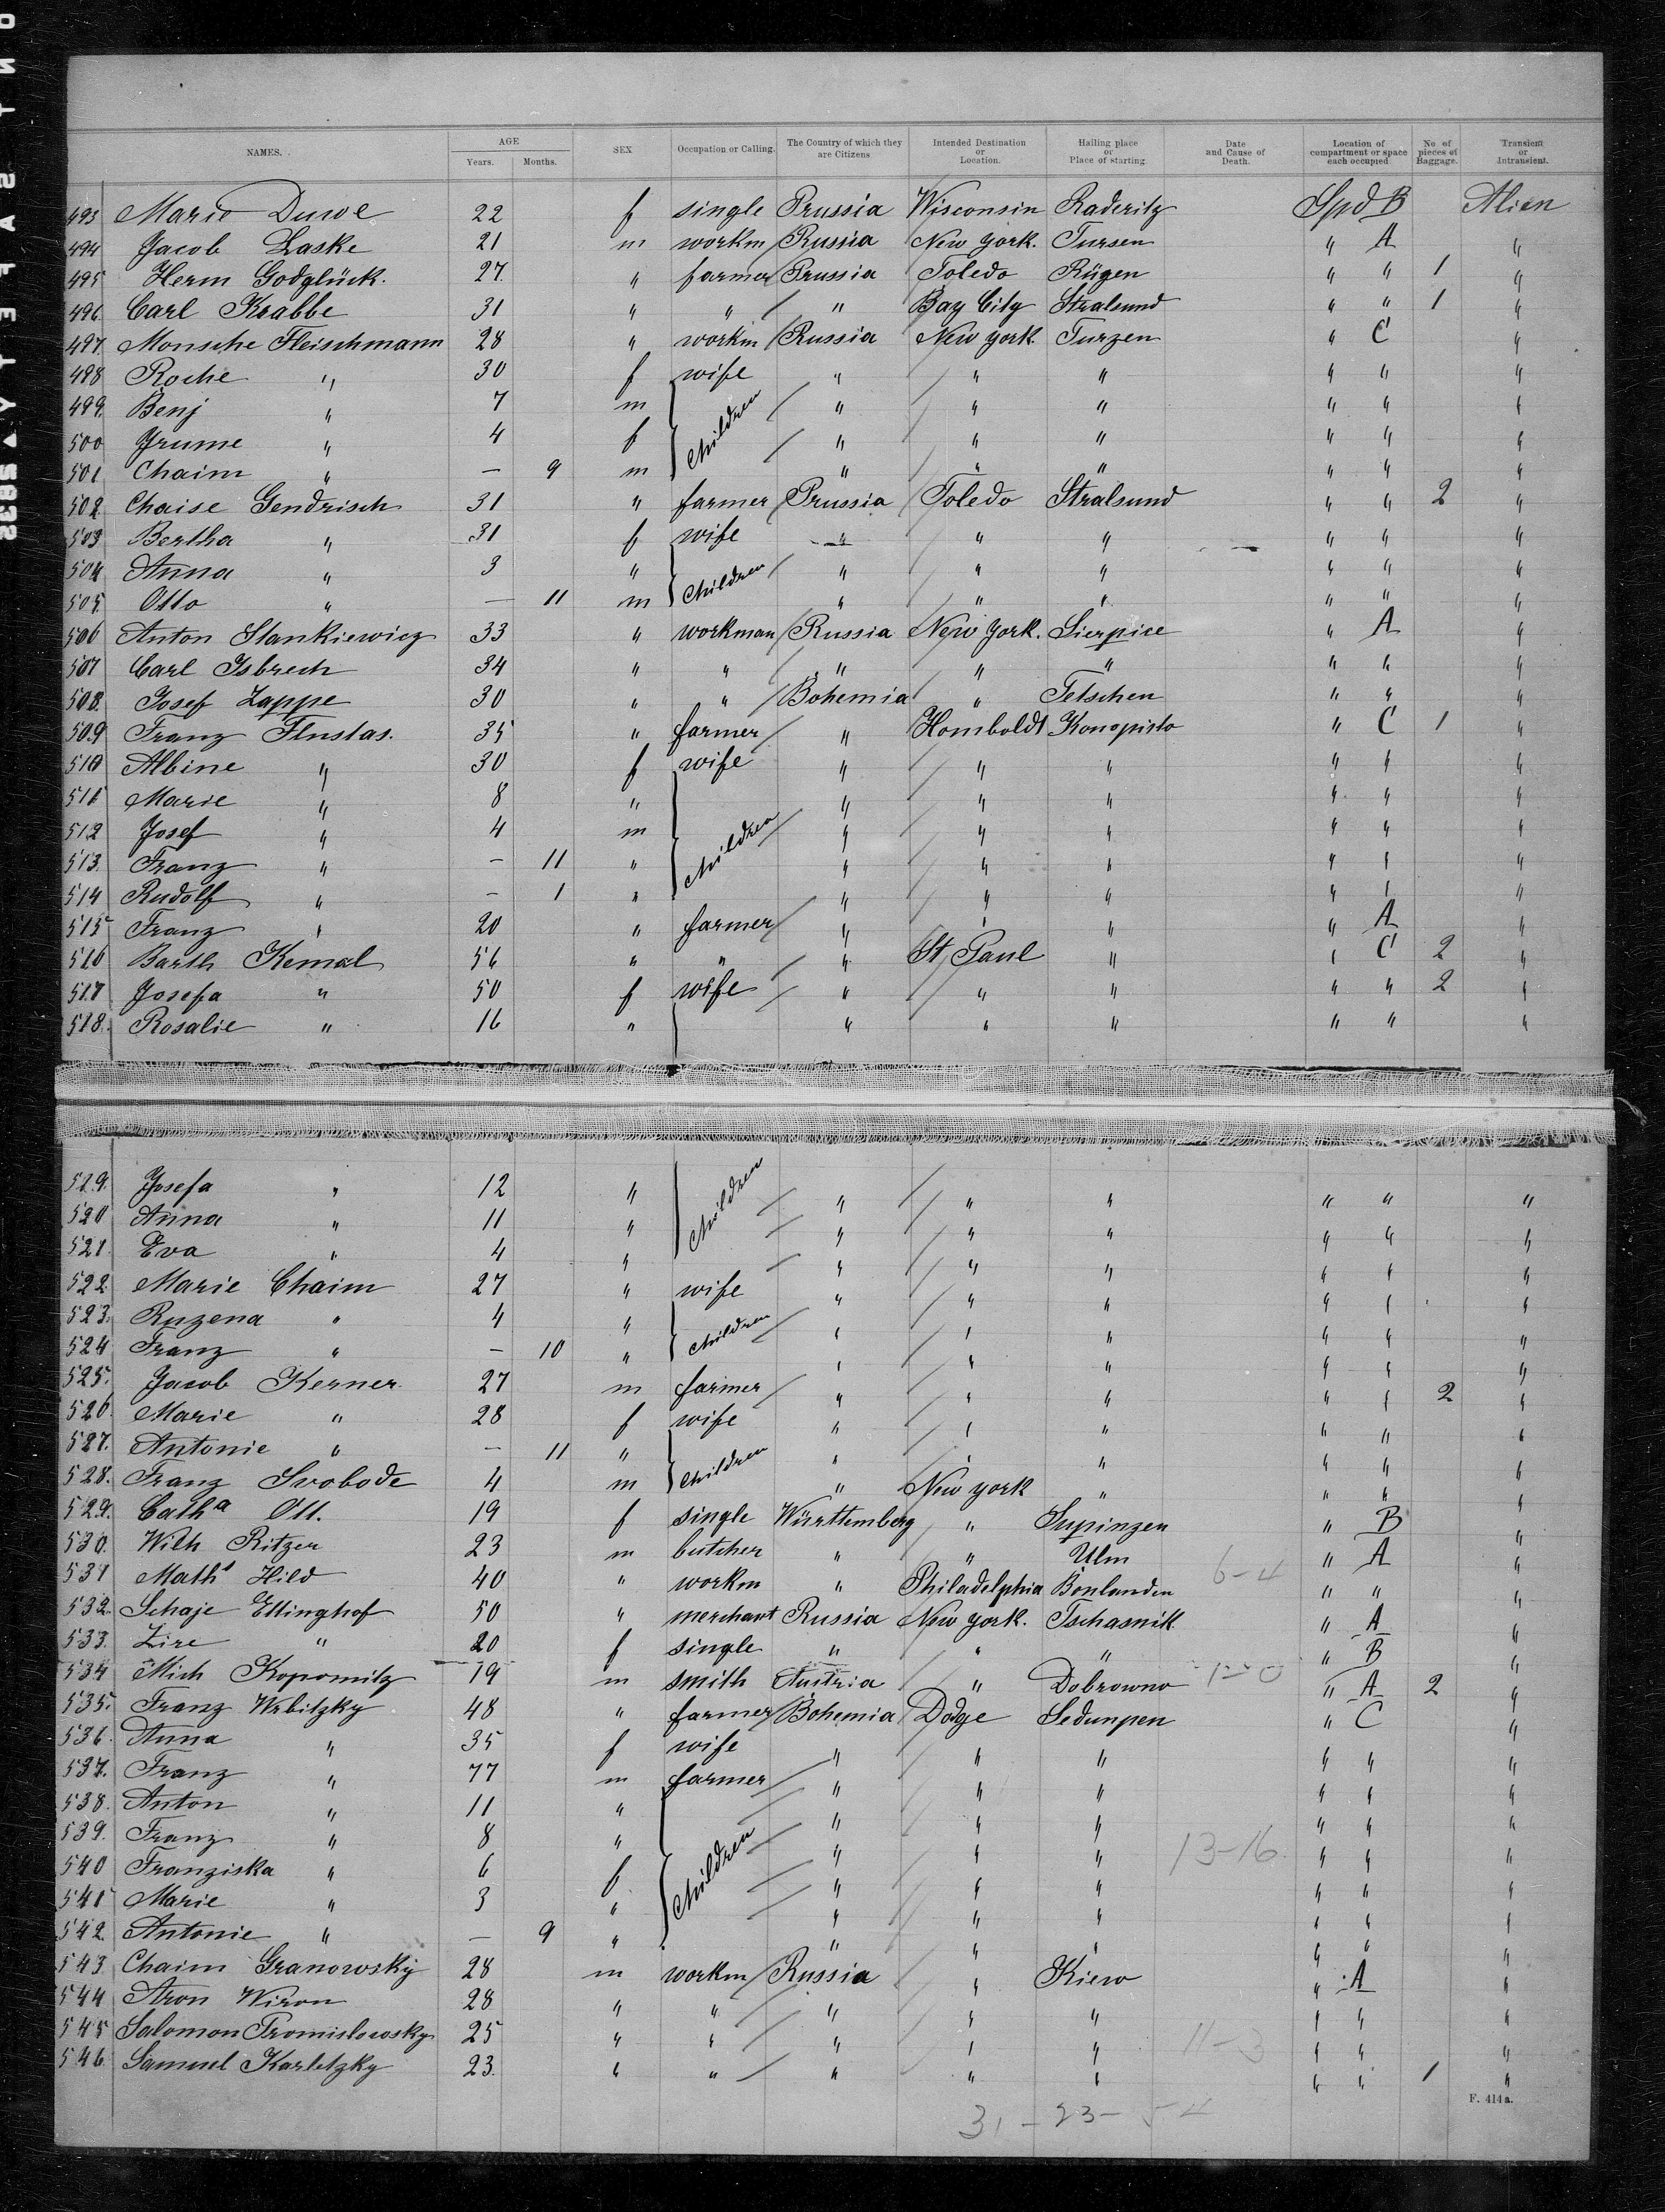 NAMES. AGE Years. Months. SEX Occupation or Calling. The Country of which they are Citizens Intended Destination or Location. Hailing place or Place of starting. Date and Cause of Death. Location of compartment or space each occupied No. of pieces of Baggage. Transient or Intransient.
493 Marie Duwe 22 f single Prussia Wisconsin Raderitz Spd B Alien
494 Jacob Laske 21 m workm Russia New York. Tursen " A "
495 Herm Godglück. 27. " farmer Prussia Toledo Rügen " " 1 "
496. Carl Krabbe 31 " " " Bay City Stralsund " " 1 "
497. Monsche Fleischmann 28 " workm Russia New York Turzen " C "
498 Roche " 30 f wife " " " " " "
499. Benj " 7 m Children " " " " " "
500 Jrume " 4 f " " " " " "
501 Chaim " — 9 m " " " " " "
502 Chaise Gendrisch 31 " farmer Prussia Toledo Stralsund " " 2 "
503 Bertha " 31 f wife " " " " " "
504 Anna " 3 " Children " " " " " "
505. Otto " — 11 m " " " " " "
506 Anton Stankiewicz 33 " workman Russia New York. Sierpice " A "
507 Carl Isbrech 34 " " " " " " " "
508. Josef Zappe 30 " " Bohemia " Tetschen " " "
509 Franz Flustas. 35 " farmer " Homboldt Konopisto " C 1 "
510 Albine " 30 f wife " " " " " "
511 Marie " 8 " " " " " " "
512 Josef " 4 m Children " " " " " "
513. Franz " — 11 " " " " " " "
514 Rudolf " — 1 " " " " " " "
515 Franz " 20 " farmer " " " " A "
516 Barth Kemal 56 " " " St Paul " " C 2 "
517 Josefa " 50 f wife " " " " " 2 "
518. Rosalie " 16 " " " " " " "
519. Josefa " 12 " Children " " " " " "
520 Anna " 11 " " " " " " "
521. Eva " 4 " " " " " " "
522. Marie Chaim 27 " wife " " " " " "
523. Ruzena " 4 " Children " " " " " "
524 Franz " — 10 " " " " " " "
525. Jacob Kerner 27 m farmer " " " " " 2 "
526. Marie " 28 f wife " " " " " "
527. Antonie " — 11 " Children " " " " " "
528. Franz Svobode 4 m " New York " " " "
529. Catha Ott. 19 f single Württemberg " Supinzen " B "
530. Wilh Ritzer 23 m butcher " " Ulm " A "
531 Maths Hild 40 " workm " Philadelphia Bonlanden 6-4 " " "
532. Schaje Ellinghof 50 " merchant Russia New York. Tschasnik " A "
533. Zire " 20 f single " " " " B "
534 Mich Kopomitz 19 m smith Austria " Dobrowno 1-0 " A 2 "
535. Franz Wrbitzky 48 " farmer Bohemia Dodge Sedunpen " C "
536. Anna " 35 f wife " " " " " "
537. Franz " 77 m farmer " " " " " "
538. Anton " 11 " " " " " " "
539. Franz " 8 " Children " " " " " "
540 Franziska " 6 f " " " 13-16 " " "
541 Marie " 3 " " " " " " "
542. Antonie " — 9 " " " " " " "
543 Chaim Granowsky 28 m workm Russia " Kiew " A "
544 Aron Wiron 28 " " " " " " " "
545 Salomon Promislowsky 25 " " " " " 11-3 " " "
546 Samuel Karletzky 23. " " " " " " " 1 "
F. 414a.
31 - 23 - 54